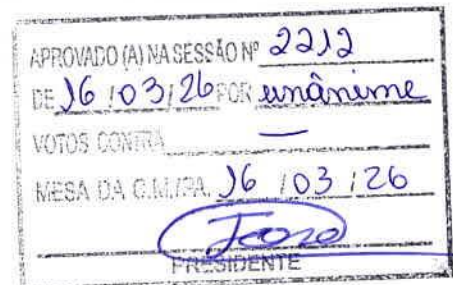 APROVADO (A) NA SESSÃO Nº 2212
DE 16/03/26 POR unânime
VOTOS CONTRA —
MESA DA C.M./PA. 16/03/26
PRESIDENTE